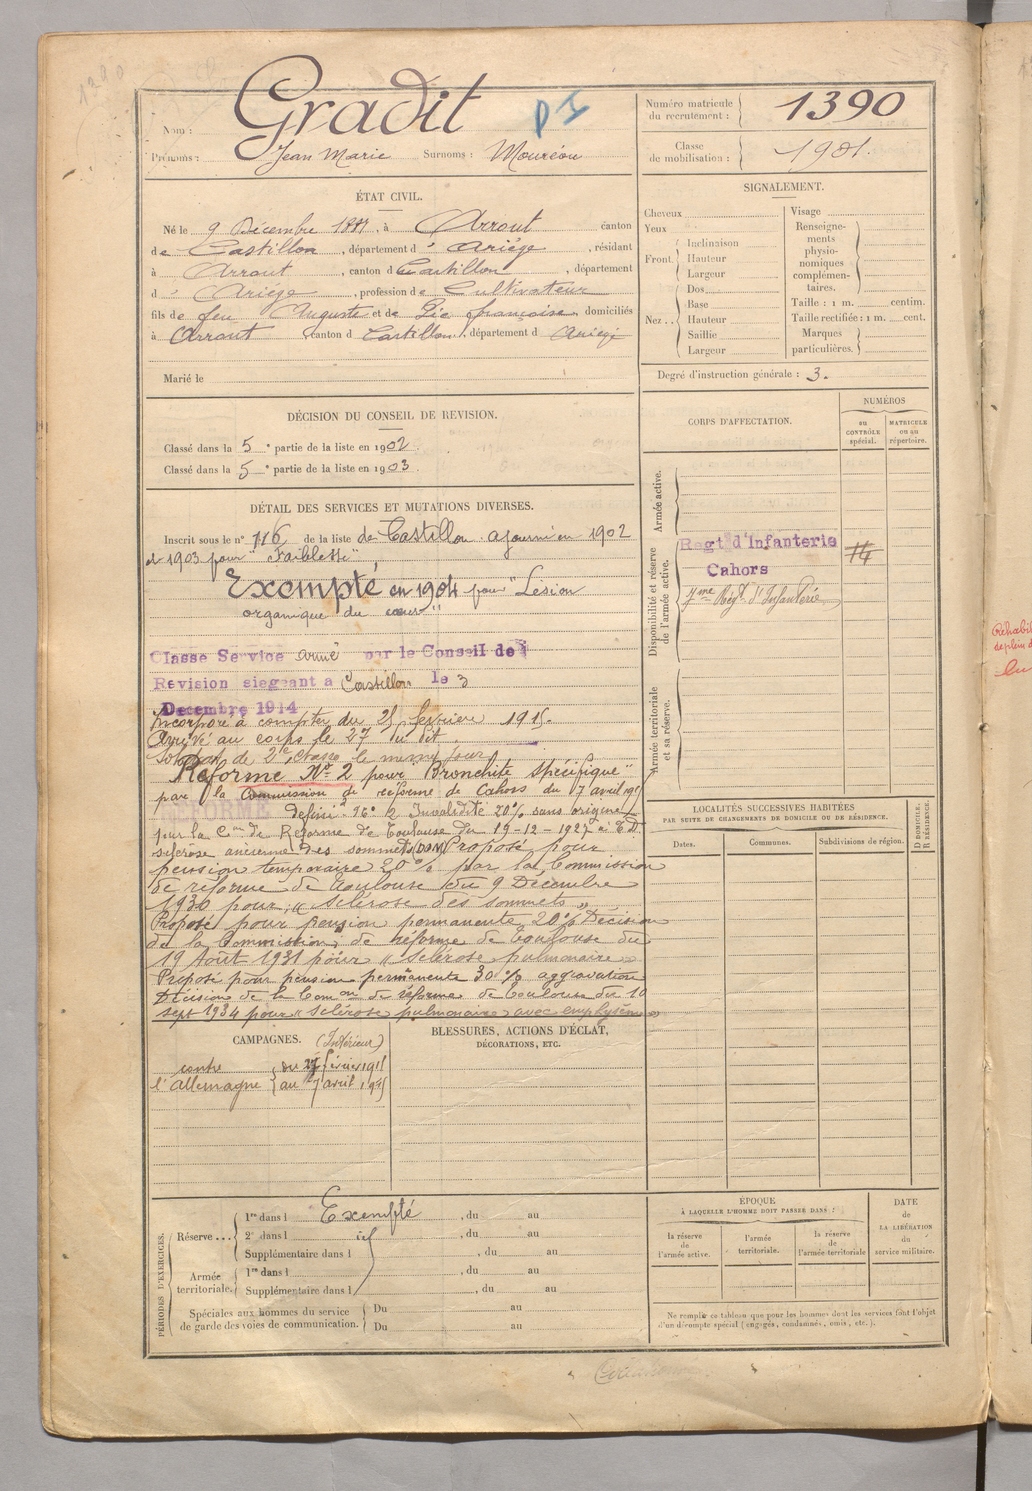 Nom : Gradit
PI
Prénoms : Jean Marie Surnoms : Mouréou
Numéro matricule du recrutement : 1390
Classe de mobilisation : 1901.
ÉTAT CIVIL.
Né le 9 Décembre 1881, à Arrout canton
de Castillon, département d' Ariège, résidant
à Arrout, canton de Castillon, département
d' Ariège, profession de Cultivateur
fils de feu Auguste et de Pic françoise, domiciliés
à Arrout, canton d Castillon, département d Ariège
Marié le
DÉCISION DU CONSEIL DE REVISION.
Classé dans la 5e partie de la liste en 1902.
Classé dans la 5e partie de la liste en 1903.
DÉTAIL DES SERVICES ET MUTATIONS DIVERSES.
Inscrit sous le n° 116 de la liste de Castillon. ajourné en 1902
et 1903 pour "Faiblesse"
Exempté en 1904 pour "Lésion
organique du cœur"
Classe Service armé par le Conseil de
Revision siegeant a Castillon le 3
Decembre 1914
Incorporé à compter du février 1915.
Arrivé au corps le 27 du dit.
Soldat de 2e classe le même jour
Réformé N° 2 pour "Bronchite spécifique"
par la Commission de réforme de Cahors du 7 avril 1915
REFORME
définif N° 2 Invalidité 20% sans origine
par la Con de Réforme de Toulouse du 19-12-1927
sclérose ancienne des sommets Proposé pour
pension temporaire 20% par la Commission
de réforme de Toulouse du 9 Décembre
1930 pour : « sclérose des sommets »
Proposé pour pension permanente 20% Décision
de la Commission de réforme de Toulouse du
19 Août 1931 pour « sclérose pulmonaire »
Proposé pour pension permanente 30% aggravation
Décision de la Comon de réforme de Toulouse du 10
sept 1934 pour « Sclérose pulmonaire avec emphysème »
CAMPAGNES.
(Intérieur)
contre l'allemagne du 27 février 1915
au 7 avril 1915
BLESSURES, ACTIONS D'ÉCLAT,
DÉCORATIONS, ETC.
PÉRIODES D'EXERCICES.
Réserve ...
1re dans l Exempté, du au
2e dans l id, du au
Supplémentaire dans l , du au
Armée territoriale.
1re dans l , du au
Supplémentaire dans l , du au
Spéciales aux hommes du service
de garde des voies de communication.
Du au
Du au
SIGNALEMENT.
Cheveux
Yeux
Front. Inclinaison
Hauteur
Largeur
Nez .. Dos
Base
Hauteur
Saillie
Largeur
Visage
Renseigne-
ments
physio-
nomiques
complémen-
taires.
Taille : 1 m. centim.
Taille rectifiée : 1 m. cent.
Marques
particulières.
Degré d'instruction générale : 3.
CORPS D'AFFECTATION.
NUMÉROS
au CONTRÔLE spécial.
MATRICULE ou au répertoire.
Armée active.
Disponibilité et réserve de l'armée active.
Regt d'Infanterie
Cahors
7me Régt d'Infanterie
Armée territoriale et sa réserve.
LOCALITÉS SUCCESSIVES HABITÉES
PAR SUITE DE CHANGEMENTS DE DOMICILE OU DE RÉSIDENCE.
Dates.
Communes.
Subdivisions de région.
D DOMICILE.
R RÉSIDENCE.
ÉPOQUE
À LAQUELLE L'HOMME DOIT PASSER DANS :
la réserve de l'armée active.
l'armée territoriale.
la réserve de l'armée territoriale
DATE
de
LA LIBÉRATION
du
service militaire.
Ne remplir ce tableau que pour les hommes dont les services font l'objet
d'un décompte spécial (engagés, condamnés, omis, etc.).